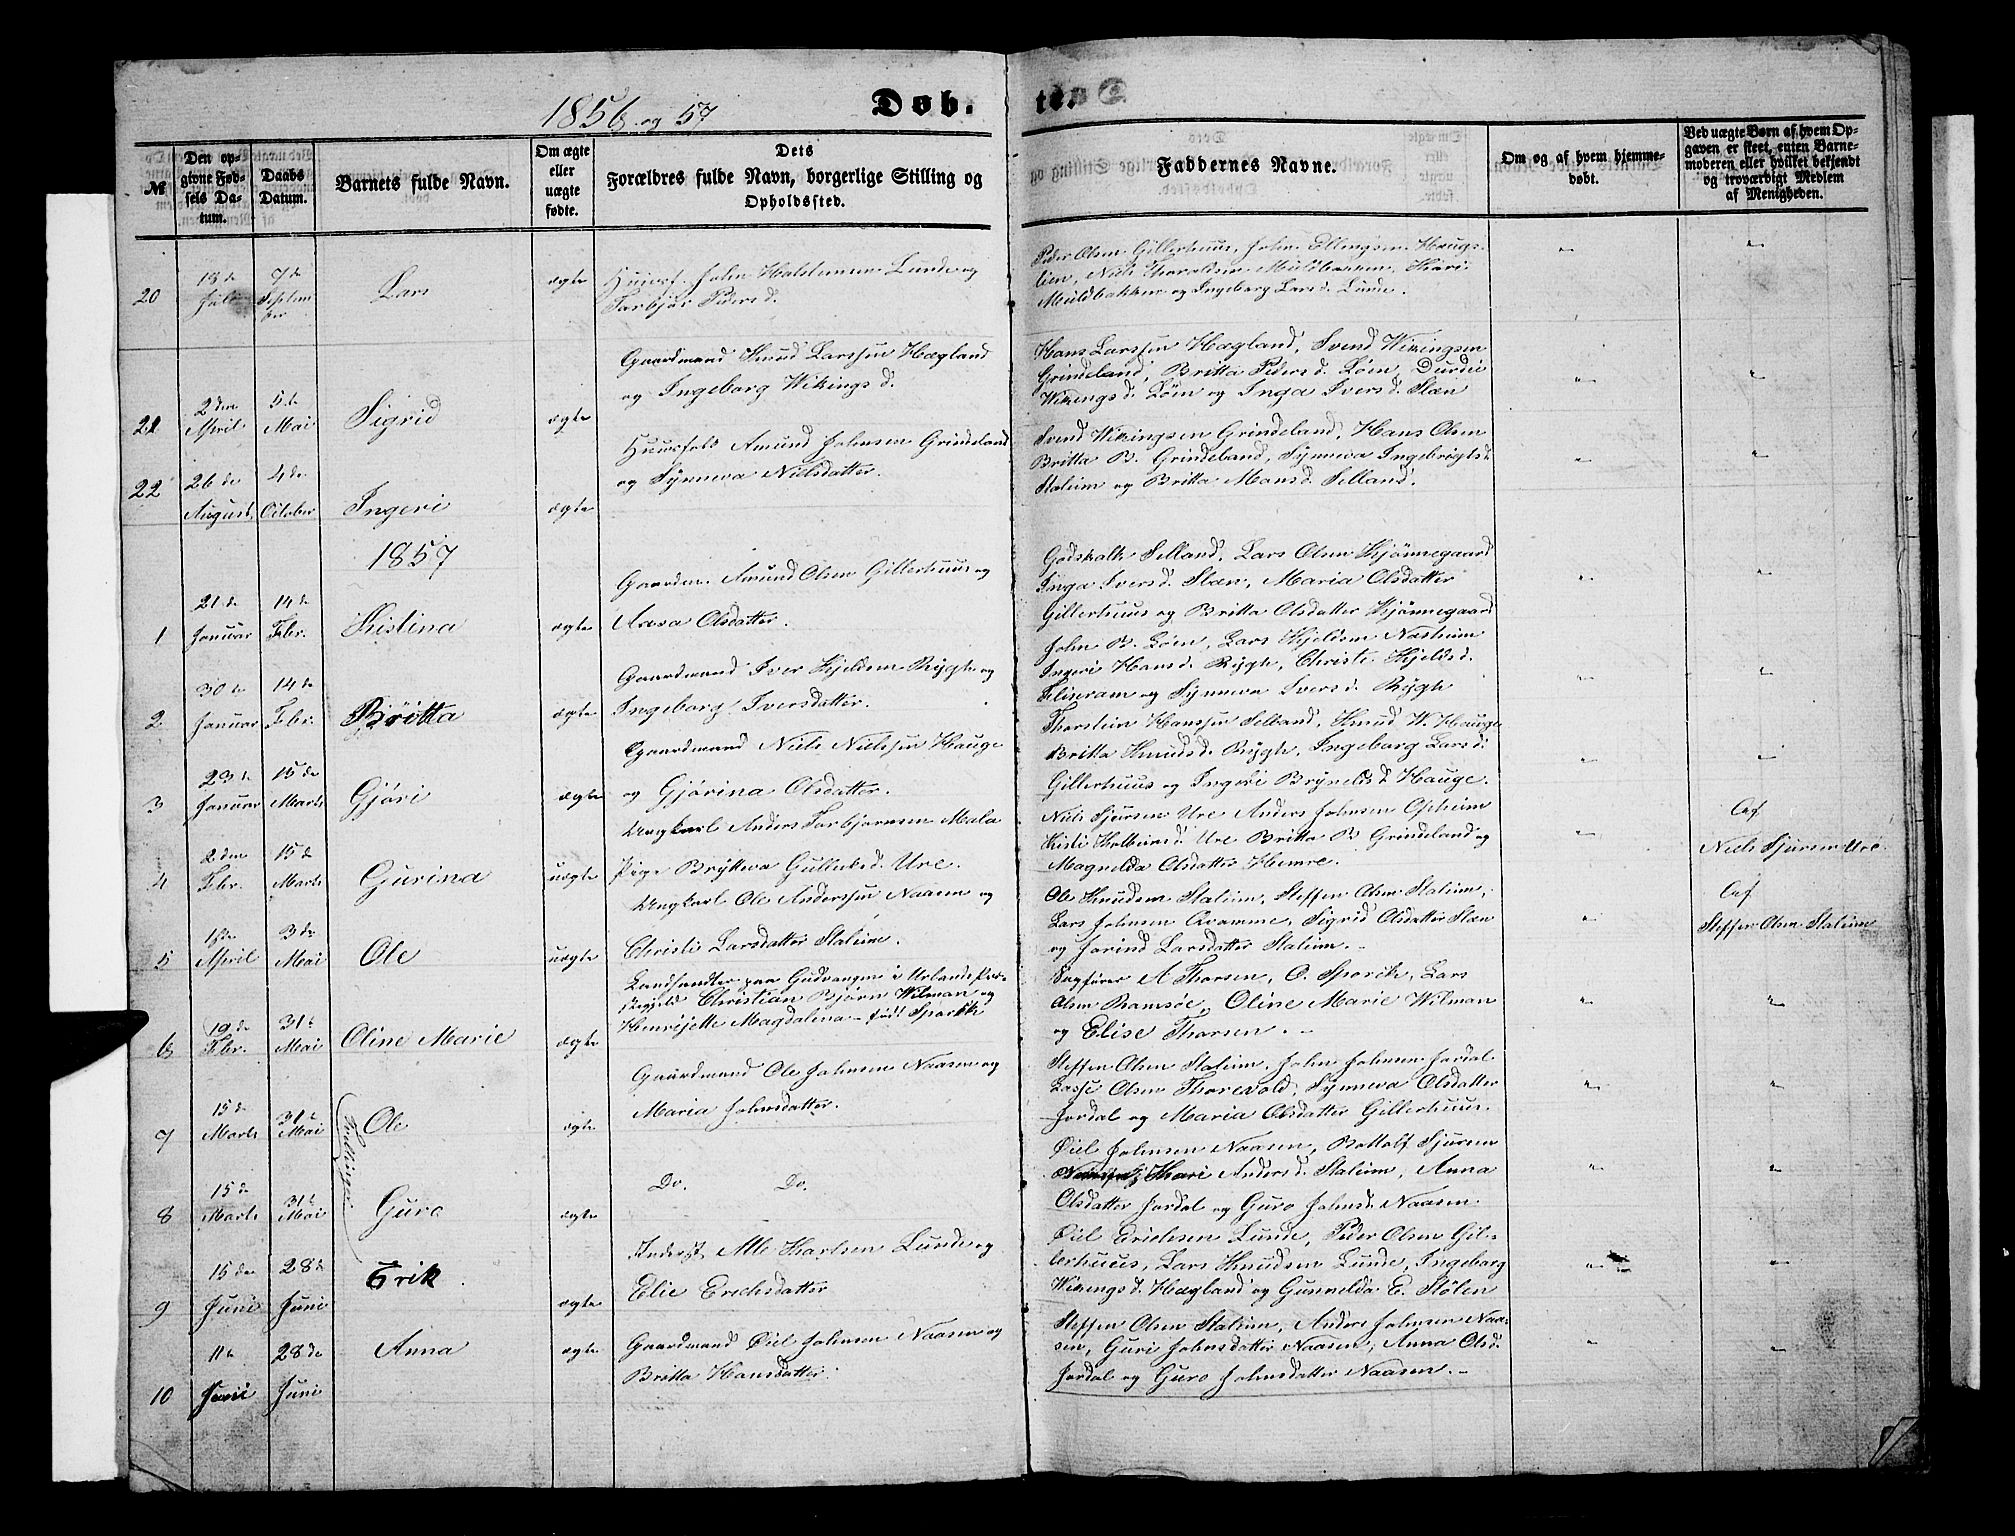 1856 og 57
Døb.
te.
№
Den opgivne Fødsels Datum.
Daabs Datum.
Barnets fulde Navn.
Om ægte eller uægte fødte.
Dets Forældres fulde Navn, borgerlige Stilling og Opholdssted.
Faddernes Navne.
Om og af hvem hjemmedøbt.
Ved uægte Børn af hvem Opgaven er skeet, enten Barnemoderen eller hvilket bekjendt og troværdigt Medlem af Menigheden.
20 18de Juli 7de September Lars ægte
John Halstensen Lunde og
Torbjør Peders d.
Peder Olsen Gillerhuus, John Ellingsen Haugs-
lien, Niels Haraldsen Muldbakken, Kari
Muldbakken og Ingeborg Lars d. Lunde.
21 2den April 5te Mai Sigrid ægte
Gaardmand Knud Larssen Hægland
og Ingeborg Wikings d.
Hans Larssen Hægland, Svend Wikingsen
Grindeland, Britta Peders d. Løen, Durdei
Wikings d. Løen og Inga Ivers d. Slæn
22 26de August 4de October Ingeri ægte
Huusfolk Amund Johnsen Grindeland
og Synneva Nielsdatter.
Svend Wikingsen Grindeland, Hans Olsen
Britta B. Grindeland, Synneva Ingebrigts d.
Staliem og Britta Mons d. Selland.
1857
1 21de Januar 14de Febr. Kistina ægte
Gaardm. Amund Olsen Gillerhuus og
Aasa Olsdatter.
Godskalk Selland, Lars Olsen Kjønnegaard
Inga Ivers d. Slæn, Maria Olsdatter
Gillerhuus og Britta Olsdatter Kjønnegaard
2 30de Januar 14de Febr. Britta ægte
Gaardmand Iver Kjeldsen Rygh og
Ingeborg Iversdatter.
John B. Løen, Lars Kjeldsen Næsheim
Ingeri Hans d. Rygh, Christi Kjelds d.
Fliseram og Synneva Ivers d. Rygh
3 23de Januar 15de Marts Gjøri ægte
Gaardmand Niels Nielssen Hauge
og Gjørina Olsdatter.
Thorstein Hanssen Selland, Knud W. Hauge
Britta Knuds d. Rygh, Ingeborg Lars d.
Gillerhuus og Ingeri Brynilds d. Hauge.
4 2den Febr. 15de Marts Gurina uægte
Ungkarl Anders Torbjørnsen Mala
Pige Brytteva Gulleiks d. Ure.
Niels Sjursen Ure Anders Johnsen Opheim
Kisti Kolbeins d. Ure Britta B. Grindeland og
Magnilda Olsdatter Hemre.
Af
Niels Sjursen Ure
5 18de April 3de Mai Ole uægte
Ungkarl Ole Anderssen Naasen og
Christi Larsdatter Staliem.
Ole Knudsen Staliem, Steffen Olsen Stalien,
Lars Johnsen Qvamme, Sigrid Olsdatter Slæn
og Jorind Larsdatter Stalien.
Af
Steffen Olsen Stalien
6 19de Febr. 31te Mai Oline Marie ægte
Landhandler paa Gudvangen i Urlands Præ-
stegjeld Christian Bjørn Wilman og
Henrijette Magdalina født Sparck
Sagfører A Thorsen, O. Sparck, Lars
Olsen Ramsøe, Oline Marie Wilman
og Elise Thorsen.
7 15de Marts 31te Mai Ole ægte
Gaardmand Ole Johnsen Naasen og
Maria Johnsdatter.
Steffen Olsen Stalien, John Johnsen Jordal
Lasse Olsen Thorevold, Synneva Olsdatter
Jordal og Maria Olsdatter Gillerhuus.
Tvillinger
8 15de Marts 31te Mai Guro ægte
Do. Do.
Øiel Johnsen Naasen, Bottolf Sjursen
Kari Anders d. Stalien, Anna
Olsdatter Jordal og Guro Johns d. Naasen
9 15de Juni 28de Juni Erik ægte
Inderst Atle Karlsen Lunde og
Elie Erichsdatter
Øiel Erichsen Lunde, Peder Olsen Gil-
lerhuus, Lars Knudsen Lunde, Ingeborg
Wikings d. Hægland og Gunnilda E. Stølen
10 11te Juni 28de Juni Anna ægte
Gaardmand Øiel Johnsen Naasen og
Britta Hansdatter.
Steffen Olsen Stalien, Anders Johnsen Naa-
sen, Guri Johnsdatter Naasen, Anna Ols d.
Jordal og Guro Johnsdatter Naasen.